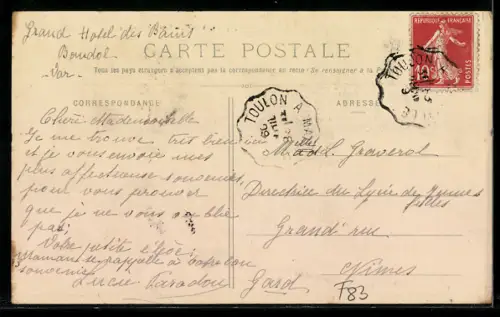 Grand Hotel des Bains
Bandol
Var
CARTE POSTALE
Tous les pays étrangers n'acceptent pas la correspondance au recto - Se renseigner à la
CORRESPONDANCE
ADRESSE
RÉPUBLIQUE FRANÇAISE
10c
POSTES
TOULON A MA
TOULON
Chère Mademoiselle
Je me trouve très bien ici
et je vous envoie mes
plus affectueux souvenirs
pour vous prouver
que je ne vous oublie
pas
Votre petite élève
maman se rappelle à votre bon
souvenir
Lucie Paradon
Mlle Graverol
Directrice du Lycée de Jeunes
filles
Grand'rue
Nîmes
Gard
F83